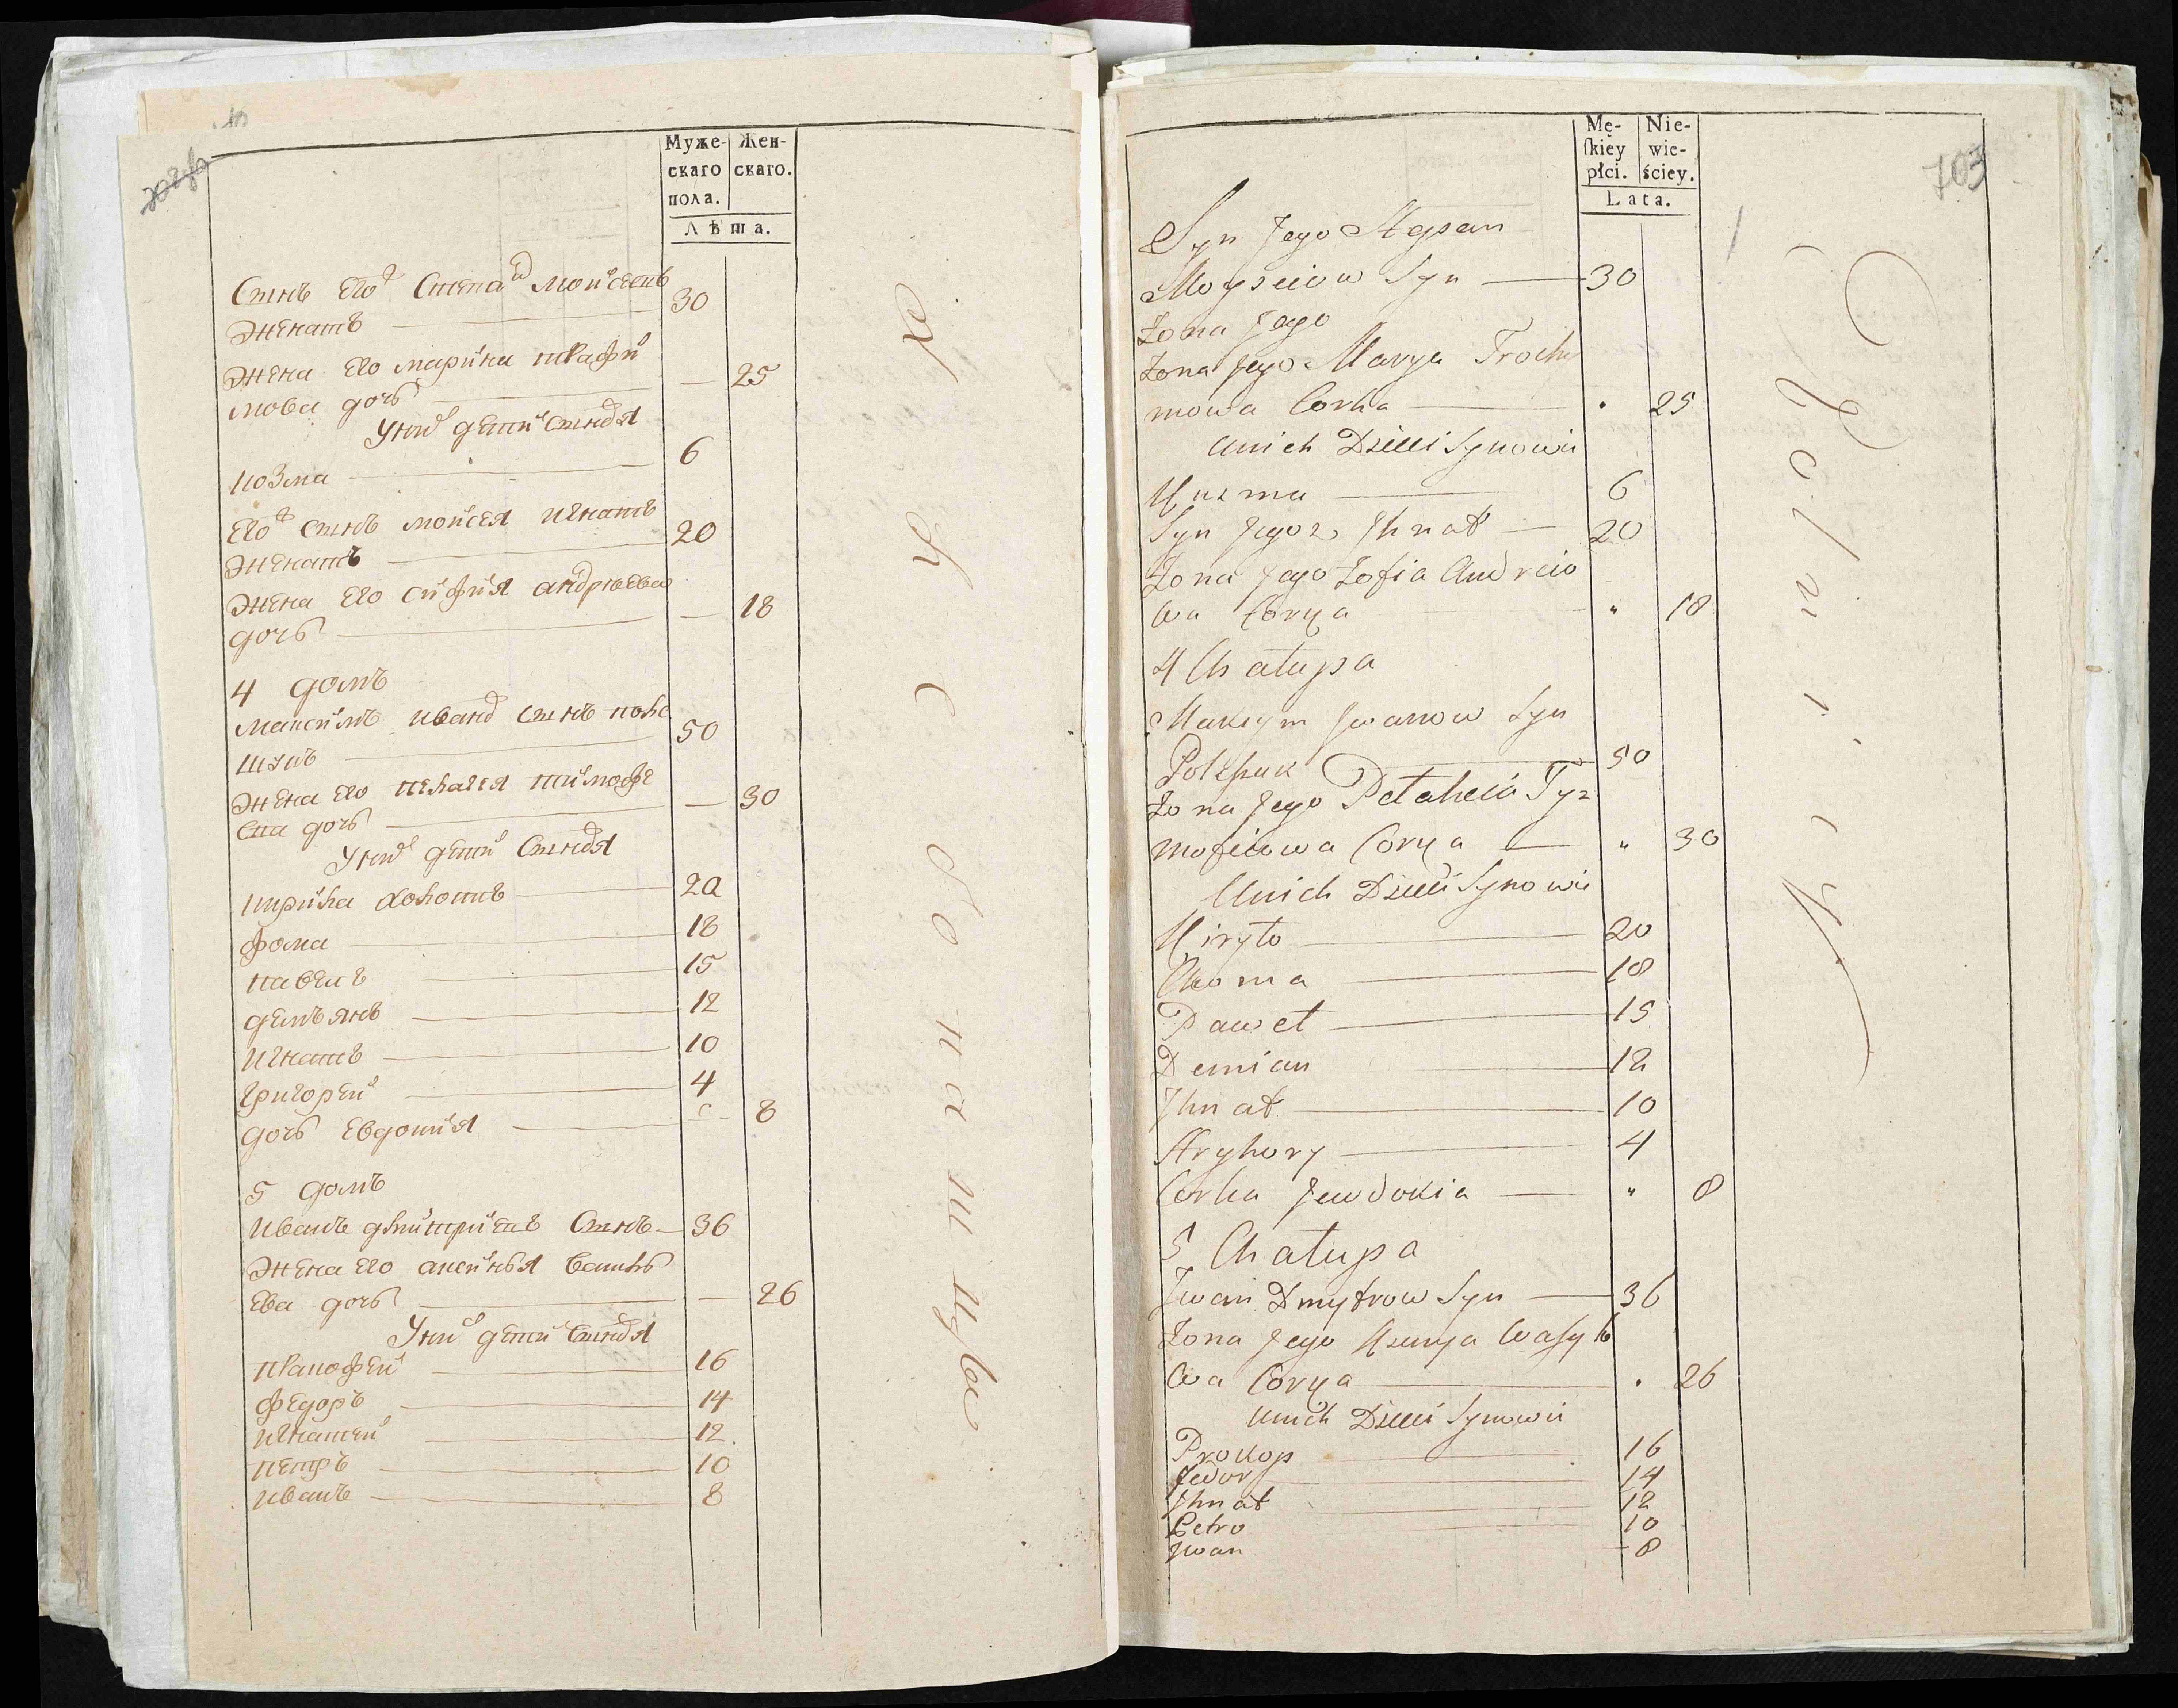 Муже-
скаго
пола.
Жен-
скаго.
Лѣта.
Сынъ его Степанъ мойсеевъ
женатъ 30
жена его марина трафи
мова дочь — 25
У нихъ дети сыновья
козма 6
Его сынъ мойсея игнатъ
женатъ 20
жена его софия андреева
дочь — 18
4 домъ
максимъ иванов сынъ поле
щукъ 50
жена его пелагея тимофе
ева дочь — 30
У нихъ дети сыновья
20
фома 18
павелъ 15
демьянъ 12
игнатъ 10
григорей 4
дочь евдокия 8
5 домъ
иванъ дмитриевъ сынъ 36
жена его аксинья василь
ева дочь — 26
У нихъ дети сыновья
16
федоръ 14
игнатей 12
петръ 10
иванъ 8
Mę-
skiey
płci.
Nie-
wie-
ściey.
Lata.
703
Syn Jego Stepan
Moyseiow Syn 30
Zona Jego
Zona Jego Marya Trochy
mowa Corka 25
Unich Dzieci Synowie
Kuzma 6
Syn Jego 2 Ihnat 20
Zona Jego Zofia Andreio
wa Corka " 18
4 Chałupa
Maksym Iwanow Syn
Poleszuk 50
Zona Jego Pelaheia Ty
mofeiowa Corka " 30
Unich Dzieci Synowie
Kiryło 20
Choma 18
Paweł 15
Demian 12
Ihnat 10
Hryhory 4
Corka Jewdokia " 8
5 Chałupa
Iwan Dmytrow Syn 36
Zona Jego Ksenya Wasyle
wa Corka 26
Unich Dzieci Synowie
Prokop 16
Fedor 14
Ihnat 12
Petro 10
Iwan 8